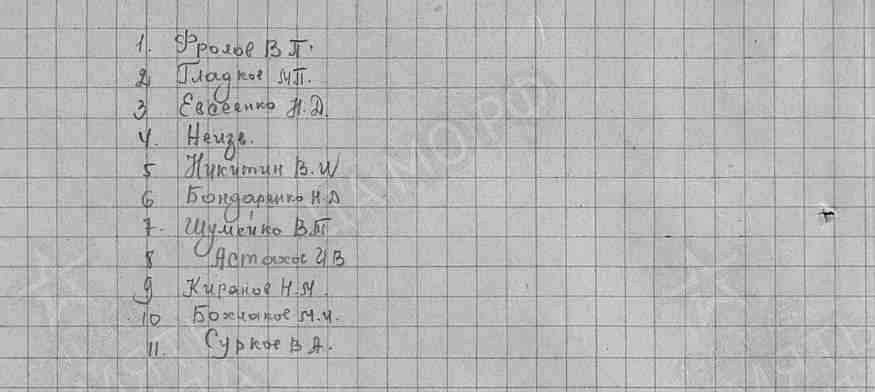 1. Фролов В П.
2 Гладков М П.
3 Евсеенко Н. Д.
4. Неизв.
5 Никитин В. И
6 Бондаренко Н. Д
7. Шумейко В. Т
8 Астахов И В
9 Киранов Н. М.
10 Бохлаков М. И.
11. Сурков В А.